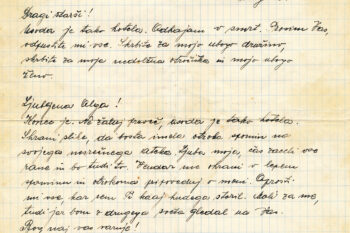 Dragi starši!
Usoda je tako hotela. Odhajam v smrt. Prosim Vas,
odpustite mi vse. Skrbite za mojo ubogo družino,
skrbite za moja nedolžna otročička in mojo ubogo
ženo.
Ljubljena Olga!
Konec je. Ne žaluj preveč, usoda je tako hotela.
Shrani sliko, da bosta imela otroka spomin na
svojega nesrečnega ateka. Ljuba moja, čas zaceli vse
rane in bo tudi to. Vendar me ohrani v lepem
spominu in otrokoma pripoveduj o meni. Oprosti
mi vse, kar sem Ti kdaj hudega storil. Moli za me,
tudi jaz bom z drugega sveta gledal na Vas.
Bog naj vas varuje!